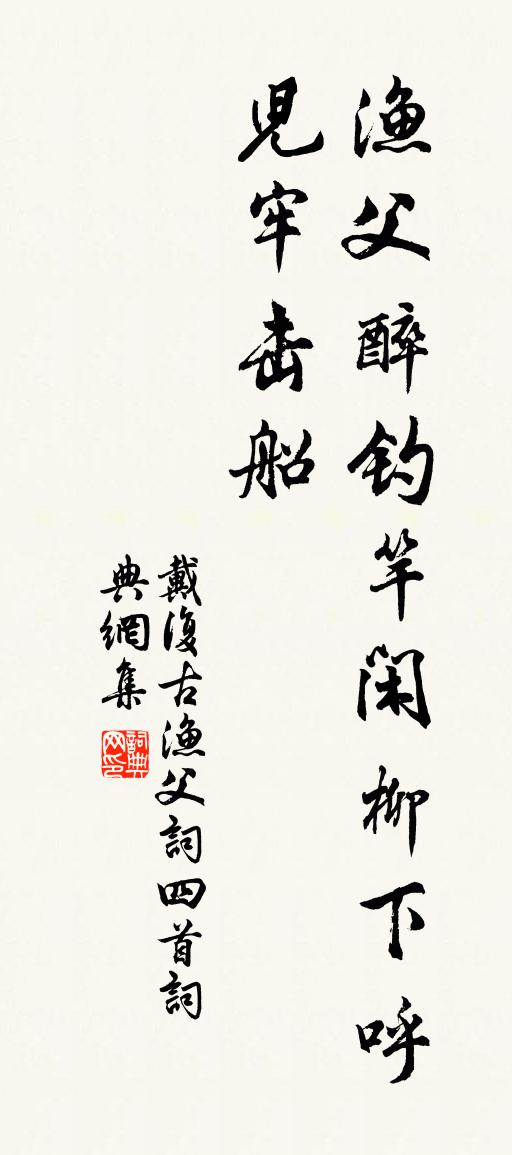 漁父醉釣竿閑柳下呼
兒牢击船
戴復古漁父詞四首詞
典網集
詞典
网印